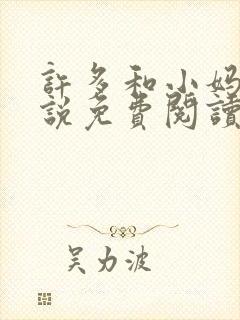 許多和小媽
說免費閱讀
吳力波